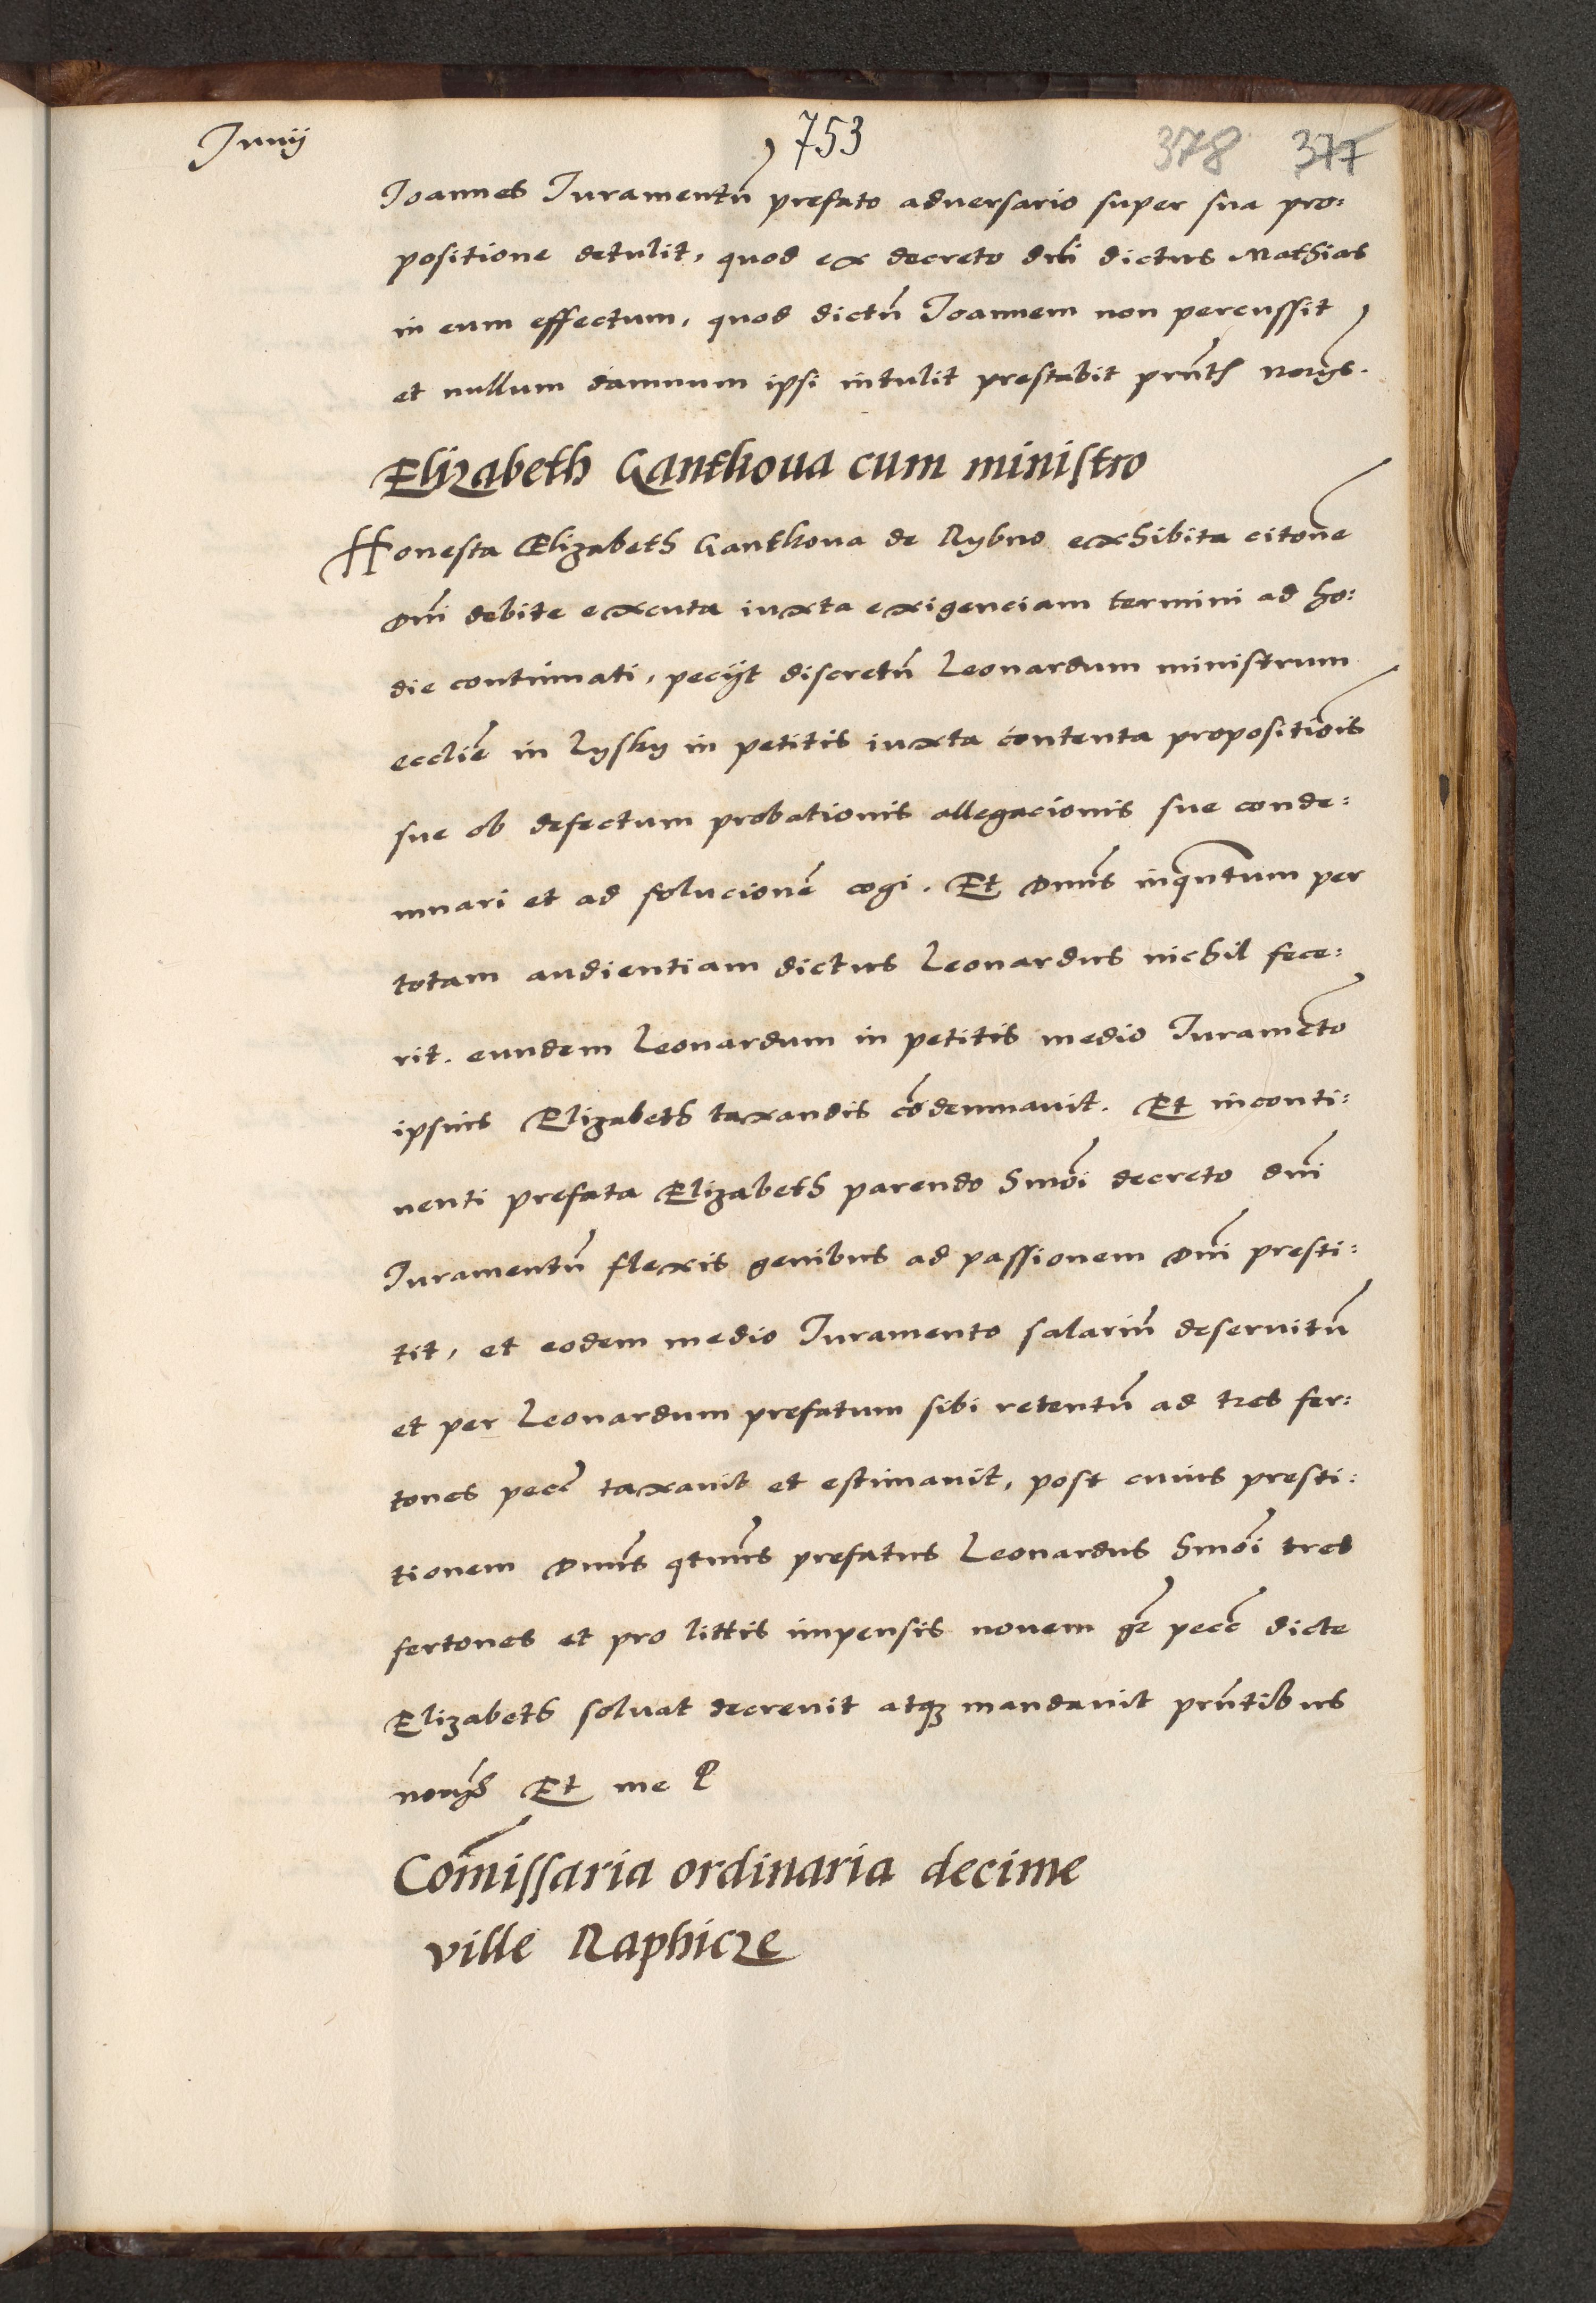 Junij
753
378 377
Joannes Juramentũ prefato adversario super sua pro:
positione detulit, quod ex decreto dñi dictus Mathias
in eum effectum, quod dictũ Joannem non percussit
et nullum damnum ipsi intulit prestabit prñtĩ norijs.
Elizabeth Ganthova cum ministro
Honesta Elizabeth Ganthova de Rybno exhibita citoñe
Dñi debite excuta iuxta exigenciam termini ad ho:
die continuati, pecijt discretũ Leonardum ministrum
ecclie in Lysky in petitis iuxta contenta propositiõis
sue ob defectum probationis allegacionis sue conde:
mnari et ad solucionẽ cogi. Et Dnũs inqũntum per
totam audientiam dictus Leonardus nichil fece:
rit. eundem Leonardum in petitis medio Juramẽto
ipsius Elizabeth taxandis cõdemnavit. Et inconti:
nenti prefata Elizabeth parendo hmõi decreto dñi
Juramentũ flexis genibus ad passionem Dñi presti:
tit, et eodem medio Juramento salariũ deservitũ
et per Leonardum prefatum sibi retentũ ad tres fer:
tones pecc̃ taxavit et estimavit, post cuius presti:
tionem Dnũs qtnũs prefatus Leonardus hmõi tres
fertones et pro littis impensis novem gr̃ pecc̃ dicte
Elizabeth solvat decrevit atqȝ mandavit prñtibus
norijs Et me
Com̃issaria ordinaria decime
ville Raphicze